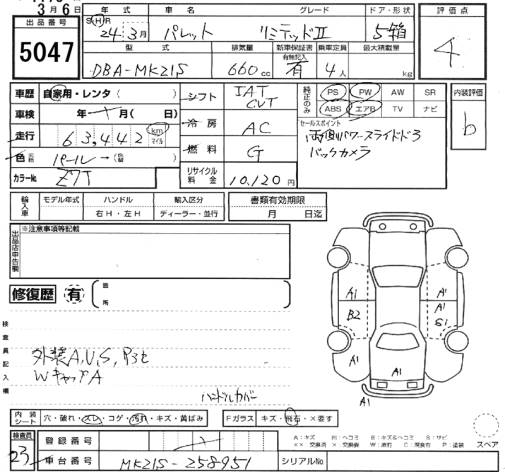 3月6日
出品番号 年式 車名 グレード ドア・形状 評価点
5047 S H R 24年3月 パレット リミテッドⅡ 5箱 4
型式 排気量 新車保証書 有無記入 乗車定員 最大積載量
DBA-MK21S 660cc 有 4人 kg
車歴 自家用・レンタ( ) シフト IAT CVT 純正のみ PS PW AW SR 内装評価
ABS エアB TV ナビ b
車検 年 月( 日) 冷房 AC セールスポイント
走行 63,442 km マイル 両側パワースライドドア
燃料 G バックカメラ
色 パール→( )
カラーNo. Z7T リサイクル料金 10.120円
輸入車 モデル年式 ハンドル 輸入区分 書類有効期限
右H・左H ディーラー・並行 月 日迄
出品店申告欄 ※注意事項等記載
修復歴 有 箇所
検査員記入欄
外装A,U,S,
WキャップA
ハンドルカバー
A1 A1 B2 A1 S1 A1 A1 A1
内装シート 穴・破れ・スレ・コゲ・汚れ・キズ・黄ばみ Fガラス キズ・飛石・×要す
スペア
検査員 23 登録番号
車台番号 MK21S-258951 シリアルNo.